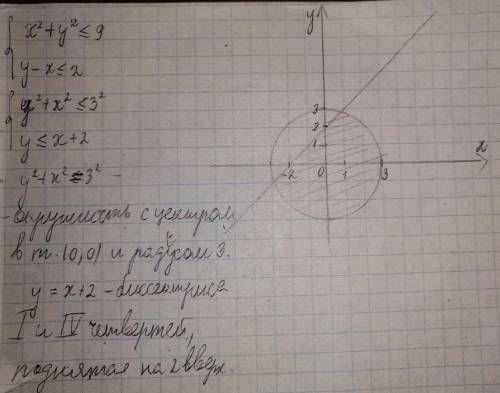 x² + y² ≤ 9
y - x ≤ 2
y² + x² ≤ 3²
y ≤ x + 2
y² + x² = 3² -
- окружность с центром
в т. (0,0) и радиусом 3.
y = x + 2 - биссектриса
I и IV четвертей,
поднятая на 2 вверх.
y
x
3
2
1
-2
0
1
3